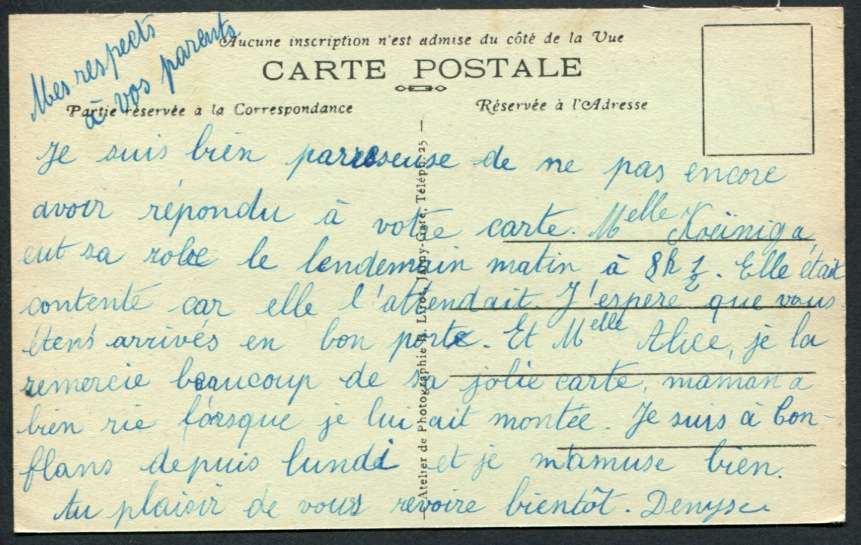 Mes respects
à vos parents
Aucune inscription n'est admise du côté de la Vue
CARTE POSTALE
Partie réservée à la Correspondance
Réservée à l'Adresse
Je suis bien paresseuse de ne pas encore
avoir répondu à votre carte. Melle Koëniga
eut sa robe le lendemain matin à 8h 1/2. Elle était
contente car elle l'attendait. J'espère que vous
étens arrivés en bon porte. Et Melle Alice, je la
remercie beaucoup de sa jolie carte, maman a
bien rie lorsque je lui ait montée. Je suis à Con-
flans depuis lundi et je m'amuse bien.
Au plaisir de vous revoire bientôt. Denyse
Atelier de Photographie Jarny-Gare, Téléph. 25